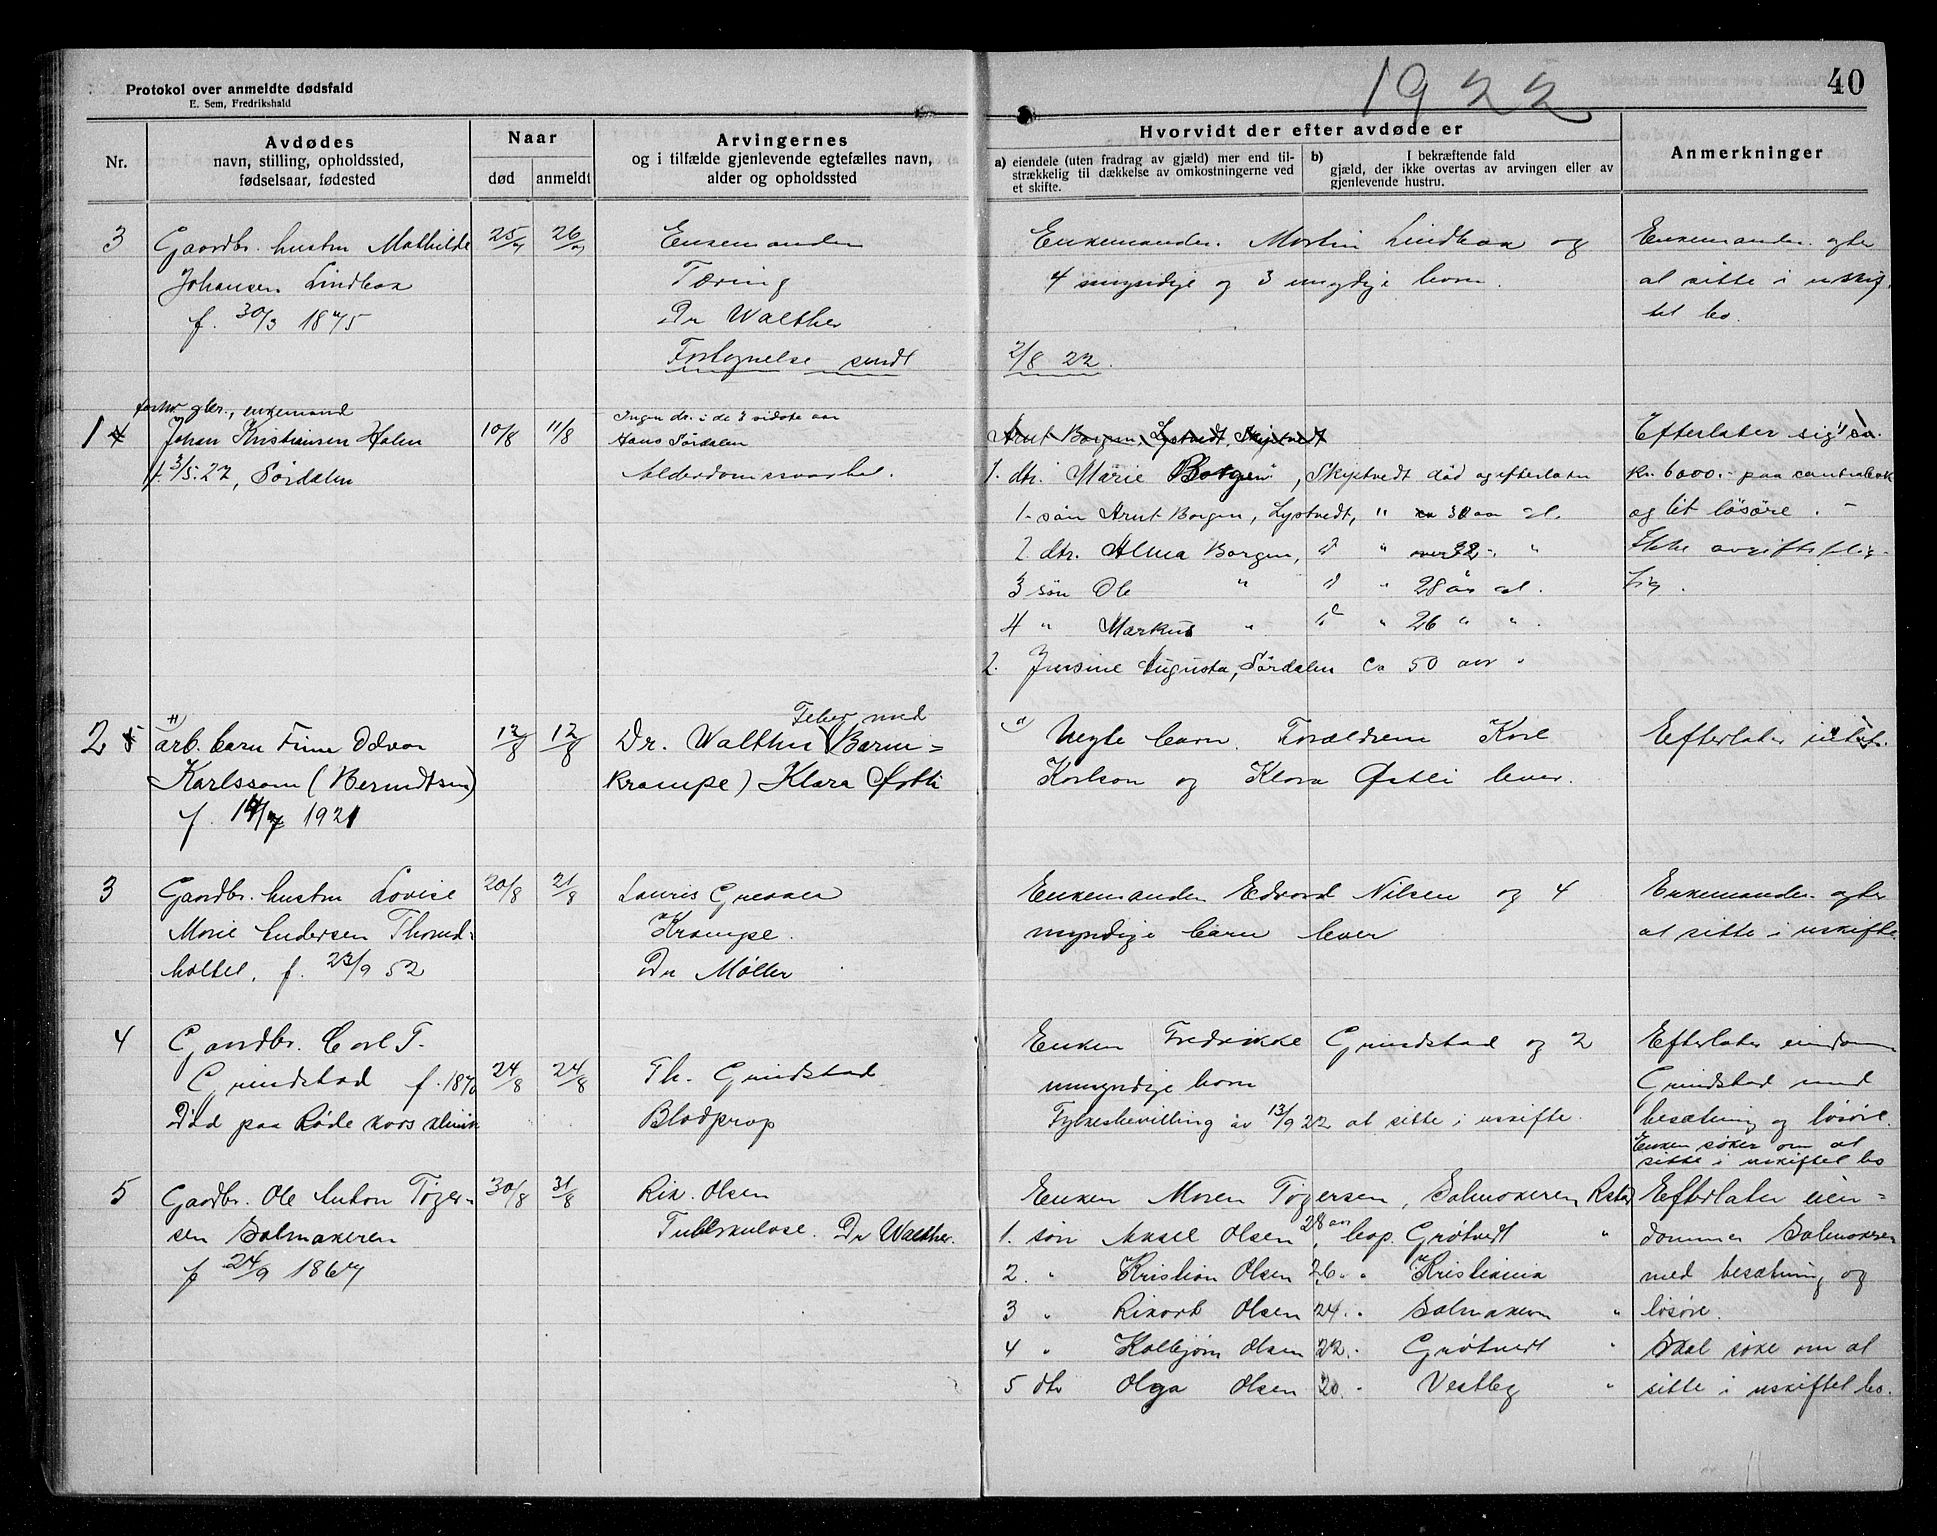 Protokol over anmeldte dødsfald
E. Sem, Fredrikshald
1922
40
Nr.
Avdødes
navn, stilling, opholdssted,
fødselsaar, fødested
Naar
død
anmeldt
Arvingernes
og i tilfælde gjenlevende egtefælles navn,
alder og opholdssted
Hvorvidt der efter avdøde er
a) eiendele (uten fradrag av gjæld) mer end til-
strækkelig til dækkelse av omkostningerne ved
et skifte.
b) I bekræftende fald
gjæld, der ikke overtas av arvingen eller av
gjenlevende hustru.
Anmerkninger
3
Gaardbr. hustru Mathilde
Johansen Lindbæk
f. 30/3 1875
25/7
26/7
Enkemanden
Tæring
Dr Walther
Fortegnelse sendt
Enkemanden Martin Lindbæk og
4 myndige og 3 umyndige barn.
2/8 22.
Enkemanden agter
at sitte i uskif-
tet bo.
1
forhv. gbr., enkemand
Johan Kristiansen Holm
f. 3/5.27, Sørdalen
10/8
11/8
Ingen dr. i de 3 sidste aar
Hans Sørdalen
Alderdomssvakhet.
Arnt Borgen, Lystvedt, Skiptvedt
1. dtr. Marie Borgen, Skiptvedt død og efterlater
1. søn Arnt Borgen, Lystvedt, " 30 aar gl.
2 dtr. Alma Borgen, " " 32 " "
3 søn Ole " " " 28 år gl.
4 " Markus " " " 26 " "
2. Jensine Augusta, Sørdalen ca 50 aar "
Efterlater sig ca.
kr. 6000.- paa centralbank
og lit løsøre. -
Ikke avgiftsplig-
tig.
2
arb. barn Finn Odvar
Karlsson (Berndtsen)
f. 14/7 1921
12/8
12/8
Feber med
Dr. Walther (Barn-
krampe) Klara Østli
Uegte barn. Forældrene Karl
Karlson og Klara Østli lever.
Efterlater intet.
3
Gaardbr. hustru Lovise
Marie Andersen Thorud-
holtet, f. 23/9 52
20/8
21/8
Lauris Gressær
Krampe.
Dr Møller
Enkemanden Edvard Nilsen og 4
myndige barn lever
Enkemanden agter
at sitte i uskifte.
4
Gaardbr. Carl T.
Grindstad f. 1870
Død paa Røde kors klinik
24/8
24/8
Th. Grindstad
Blodprop
Enken Fredrikke Grindstad og 2
umyndige barn
Fylkesbevilling av 13/9 22 at sitte i uskifte.
Efterlater eiendom
Grindstad med
besætning og løsøre.
Enken søker om at
sitte i uskiftet bo
5
Gaardbr. Ole Anton Tøger-
sen Salmakeren
f 24/9 1867
30/8
31/8
Rik. Olsen
Tuberkulose. Dr Walther.
Enken Maren Tøgersen, Salmakeren, Rstad
1. søn Aksel Olsen 28 aar, bop. Grøtvedt "
2. " Kristian Olsen 26. " Kristiania
3 " Rikart Olsen 24. " Salmakern "
4 " Kolbjørn Olsen 22. " Grøtvedt "
5 dtr Olga Olsen 20. " Vestby "
Efterlater eien-
dommen Salmakeren
med besætning og
løsøre.
Skal søke om at
sitte i uskiftet bo.